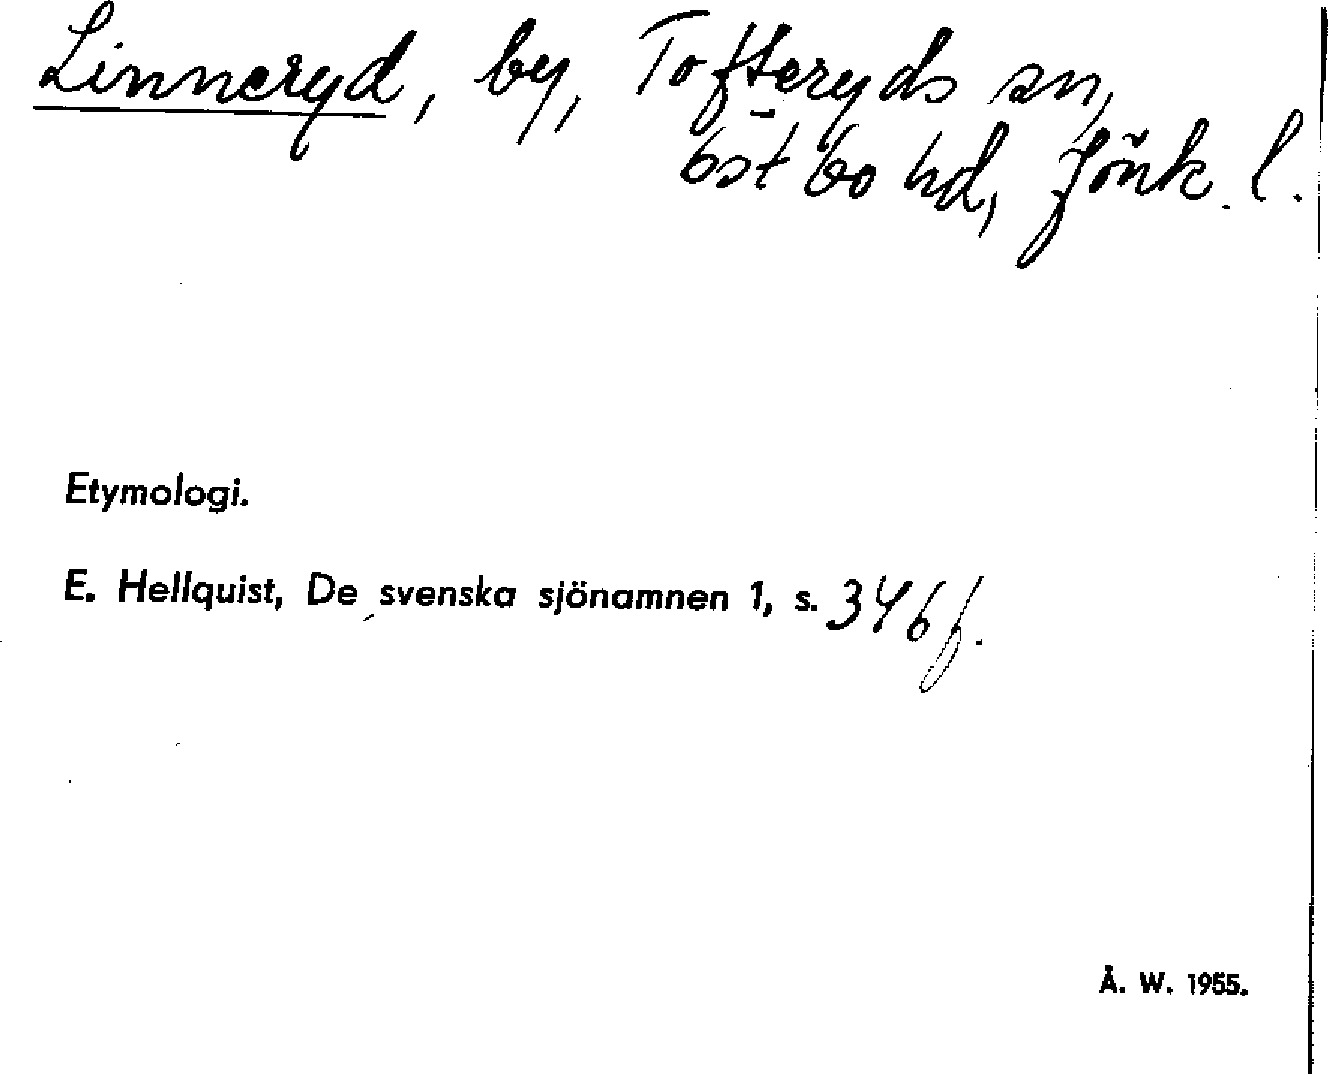 Linneryd, by, Tofteryds sn,
Östbo hd, Jönk. l.
Etymologi.
E. Hellquist, De svenska sjönamnen 1, s. 346 f.
Å. W. 1955.